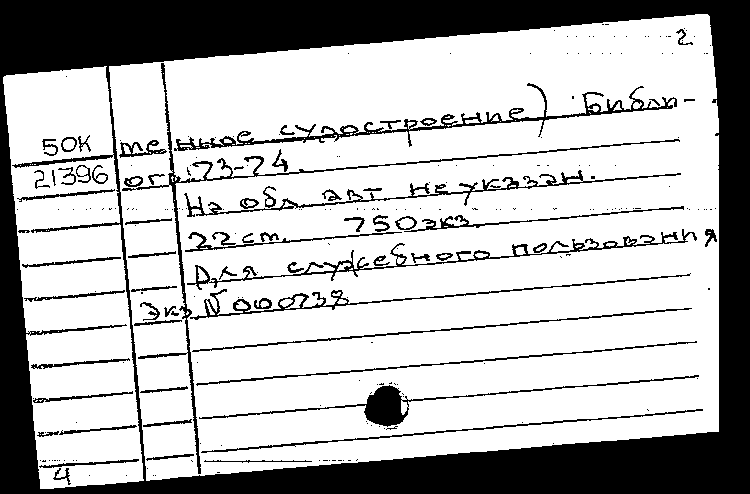 2
50К менное судостроение) Библи-
21396 огр.:73-74.
На обл. авт не указан.
22 ст. 750 экз.
Для служебного пользования
Экз. № 000738
4